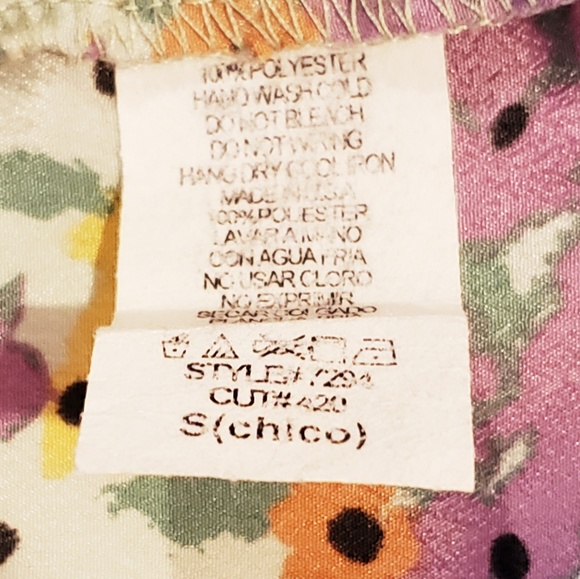 100% POLYESTER
HAND WASH COLD
DO NOT BLEACH
DO NOT WRING
HANG DRY COOL IRON
MADE IN U.S.A
100% POLIESTER
LAVAR A MANO
CON AGUA FRIA
NO USAR CLORO
NO EXPRIMIR
SECAR COLGADO
STYLE# 7294
CUT# 420
S(chico)